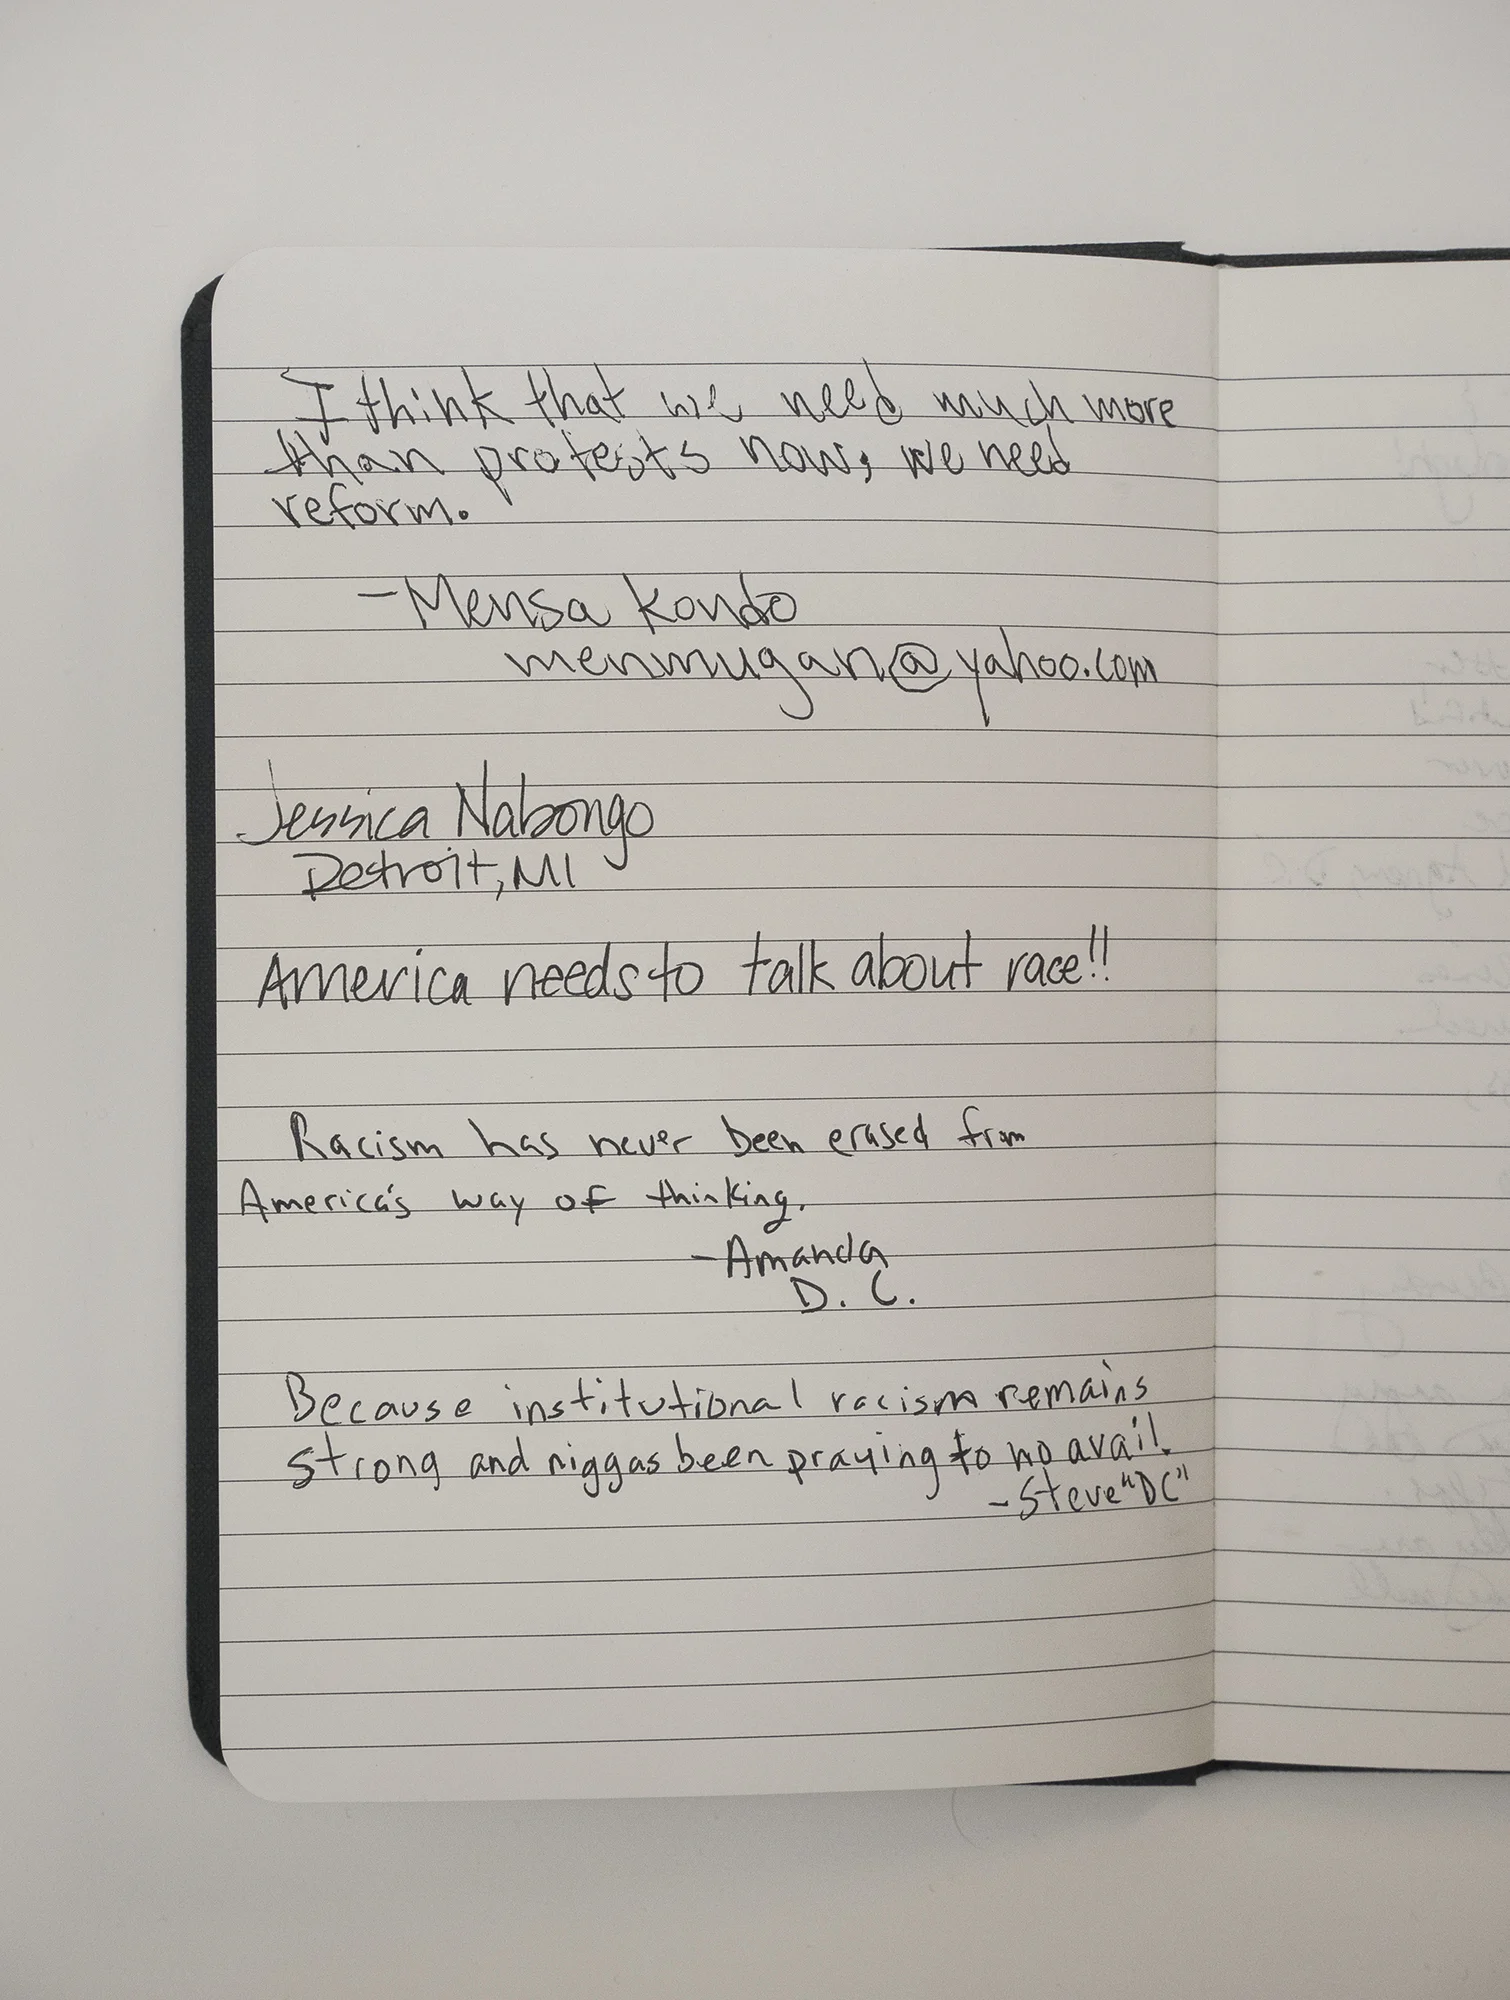 I think that we need much more
than protests now, we need
reform.
- Mensa Kondo
menmugan@yahoo.com
Jessica Nabongo
Detroit, MI
America needs to talk about race!!
Racism has never been erased from
America's way of thinking.
- Amanda
D. C.
Because institutional racism remains
strong and niggas been praying to no avail.
- Steve "DC"